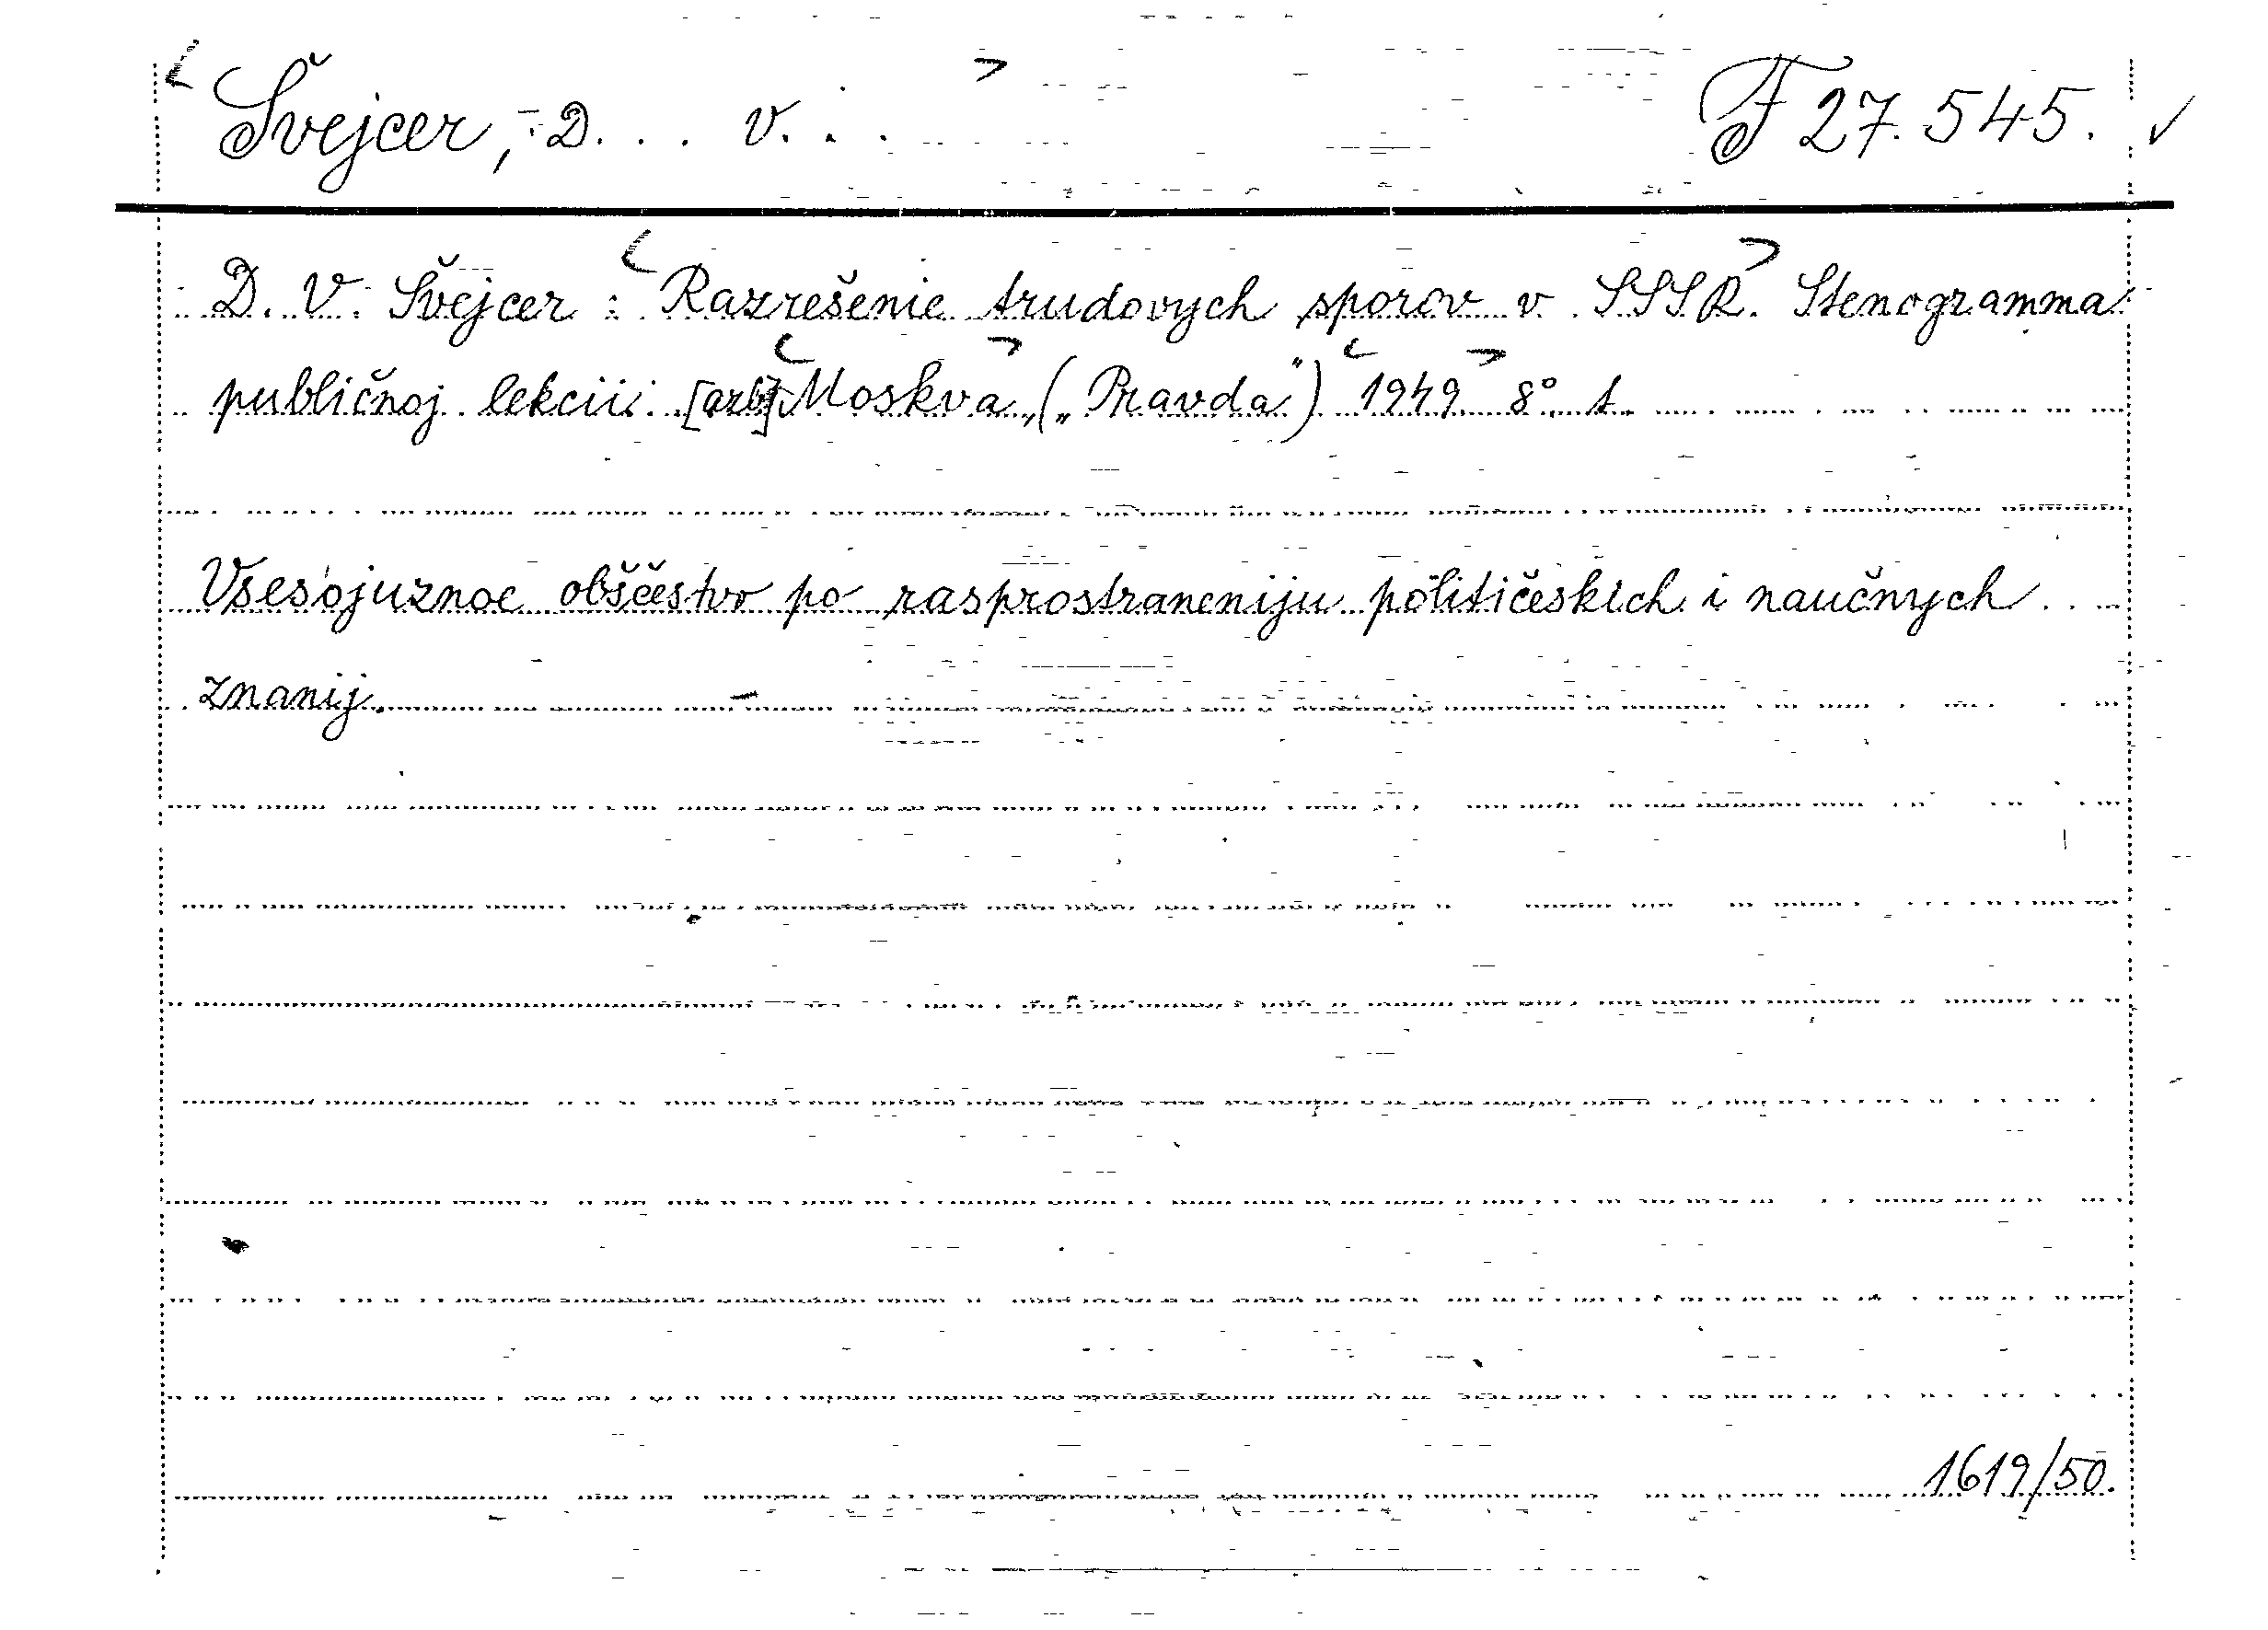 Švejcer, D... V... F 27.545. ✓
D. V. Švejcer: Razrešenie trudovych sporov v SSSR. Stenogramma
publičnoj lekcii. Moskva, („Pravda") 1949 8°. 1.
Vsesojuznoe obščestvo po rasprostraneniju političeskich i naučnych
znanij.
1619/50.